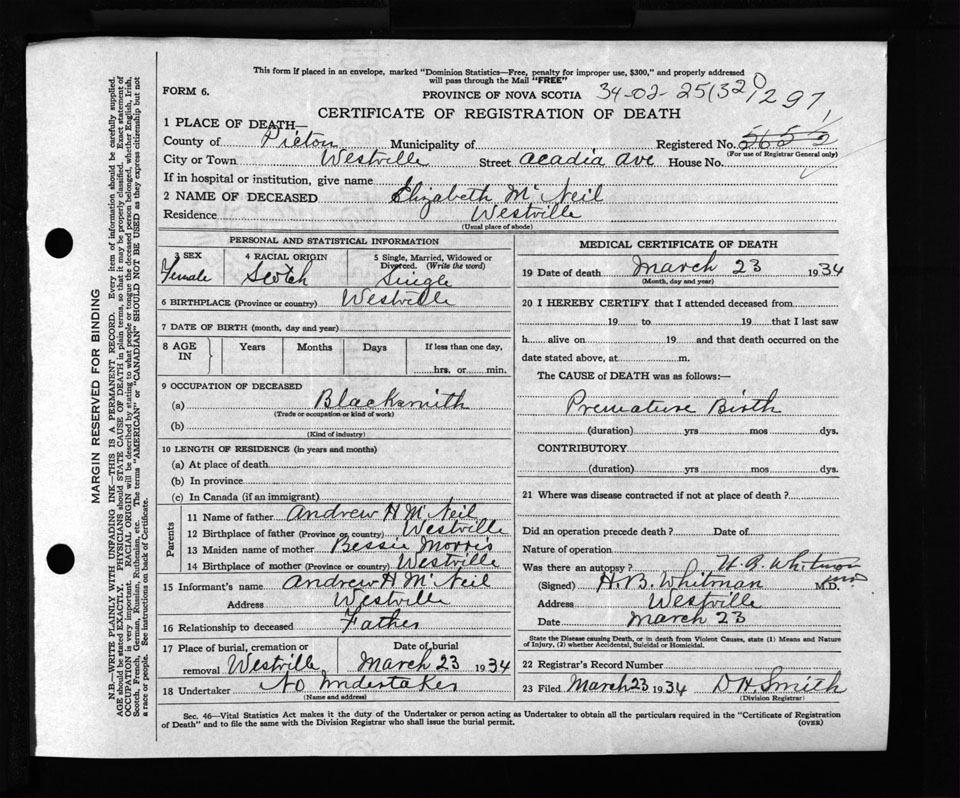 This form if placed in an envelope, marked "Dominion Statistics—Free, penalty for improper use, $300," and properly addressed
will pass through the Mail "FREE"
FORM 6.
PROVINCE OF NOVA SCOTIA 34-02-251320/297
CERTIFICATE OF REGISTRATION OF DEATH
1 PLACE OF DEATH—
County of Pictou Municipality of Registered No. 5653
(For use of Registrar General only)
City or Town Westville Street Acadia Ave House No.
If in hospital or institution, give name
2 NAME OF DECEASED Elizabeth McNeil
Residence Westville
(Usual place of abode)
PERSONAL AND STATISTICAL INFORMATION
3 SEX Female
4 RACIAL ORIGIN Scotch
5 Single, Married, Widowed or Divorced. (Write the word) Single
6 BIRTHPLACE (Province or country) Westville
7 DATE OF BIRTH (month, day and year)
8 AGE IN Years Months Days If less than one day, hrs. or min.
9 OCCUPATION OF DECEASED
(a) Blacksmith
(Trade or occupation or kind of work)
(b)
(Kind of industry)
10 LENGTH OF RESIDENCE (in years and months)
(a) At place of death
(b) In province
(c) In Canada (if an immigrant)
Parents
11 Name of father Andrew H McNeil
12 Birthplace of father (Province or country) Westville
13 Maiden name of mother Bessie Morris
14 Birthplace of mother (Province or country) Westville
15 Informant's name Andrew H McNeil
Address Westville
16 Relationship to deceased Father
17 Place of burial, cremation or removal Westville
Date of burial March 23 1934
18 Undertaker No Undertaker
(Name and address)
MEDICAL CERTIFICATE OF DEATH
19 Date of death March 23 1934
(Month, day and year)
20 I HEREBY CERTIFY that I attended deceased from
19 to 19 that I last saw
h alive on 19 and that death occurred on the
date stated above, at m.
The CAUSE of DEATH was as follows:—
Premature Birth
(duration) yrs mos dys.
CONTRIBUTORY
(duration) yrs mos dys.
21 Where was disease contracted if not at place of death?
Did an operation precede death? Date of
Nature of operation
Was there an autopsy? H. B. Whitman
(Signed) H. B. Whitman M.D.
Address Westville
Date March 23
State the Disease causing Death, or in death from Violent Causes, state (1) Means and Nature
of Injury, (2) whether Accidental, Suicidal or Homicidal.
22 Registrar's Record Number
23 Filed March 23 1934 D H Smith
(Division Registrar)
Sec. 46—Vital Statistics Act makes it the duty of the Undertaker or person acting as Undertaker to obtain all the particulars required in the "Certificate of Registration
of Death" and to file the same with the Division Registrar who shall issue the burial permit.
(OVER)
MARGIN RESERVED FOR BINDING
N.B.—WRITE PLAINLY WITH UNFADING INK—THIS IS A PERMANENT RECORD. Every item of information should be carefully supplied.
AGE should be stated EXACTLY. PHYSICIANS should STATE CAUSE OF DEATH in plain terms, so that it may be properly classified. Exact statement of
OCCUPATION is very important. RACIAL ORIGIN will be described by stating to what people or tongue the deceased person belonged, whether English, Irish,
Scotch, French, German, Russian, Ruthenian, etc. The terms "AMERICAN" or "CANADIAN" SHOULD NOT BE USED as they express citizenship but not
a race or people. See instructions on back of Certificate.